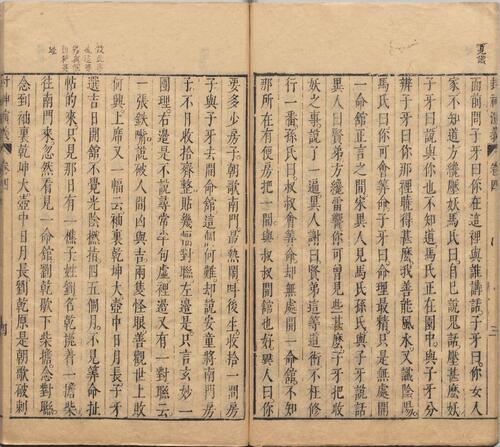 見識
封神演義 卷四
而前問子牙曰你在這裡與誰講話子牙曰你女人
家不知道方纔壓妖馬氏曰自已說鬼話壓甚麼妖
子牙曰說也你不知道馬氏正在園中與子牙分
辨子牙曰你那裡曉得甚麼我善能風水又識陰陽
馬氏曰你可會算命子牙曰命理最精只是無處開
命館正言之間宋異人見馬氏孫氏與子牙說話
異人曰賢弟方纔雷响你可曾見些甚麼子牙把收
妖之事說了一遍異人謝曰賢弟這等道術不枉修
行一番孫氏曰叔叔會算命却無處開一命館不知
那所在有便房把一間與叔叔開館也好異人曰你
要多少房子朝歌南門最熱鬧呌後生收拾一間房
子與子牙去開命館這個何難却說安童將南門房
子不日收拾齊整貼幾幅對聯左邊是只言玄妙一
團理右邊是不說尋常半句虛裡邊又有一對聯云
一張鉄嘴說破人間凶與吉兩隻怪眼善觀世上敗
何興上席又一幅云袖裏乾坤大壺中日月長子牙
選吉日開館不覺光陰撚指四五個月不見算命扯
帖的來只見那日有一樵子姓劉名乾挑着一擔柴
往南門來忽然看見一命館劉乾歇下柴擔念對聯
念到袖裏乾坤大壺中日月長劉乾原是朝歌破刺
封神演義 卷四